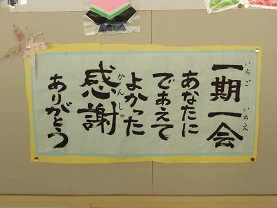 一期一会
いちご いちえ
あなたに
であえて
よかった
感謝
かんしゃ
ありがとう